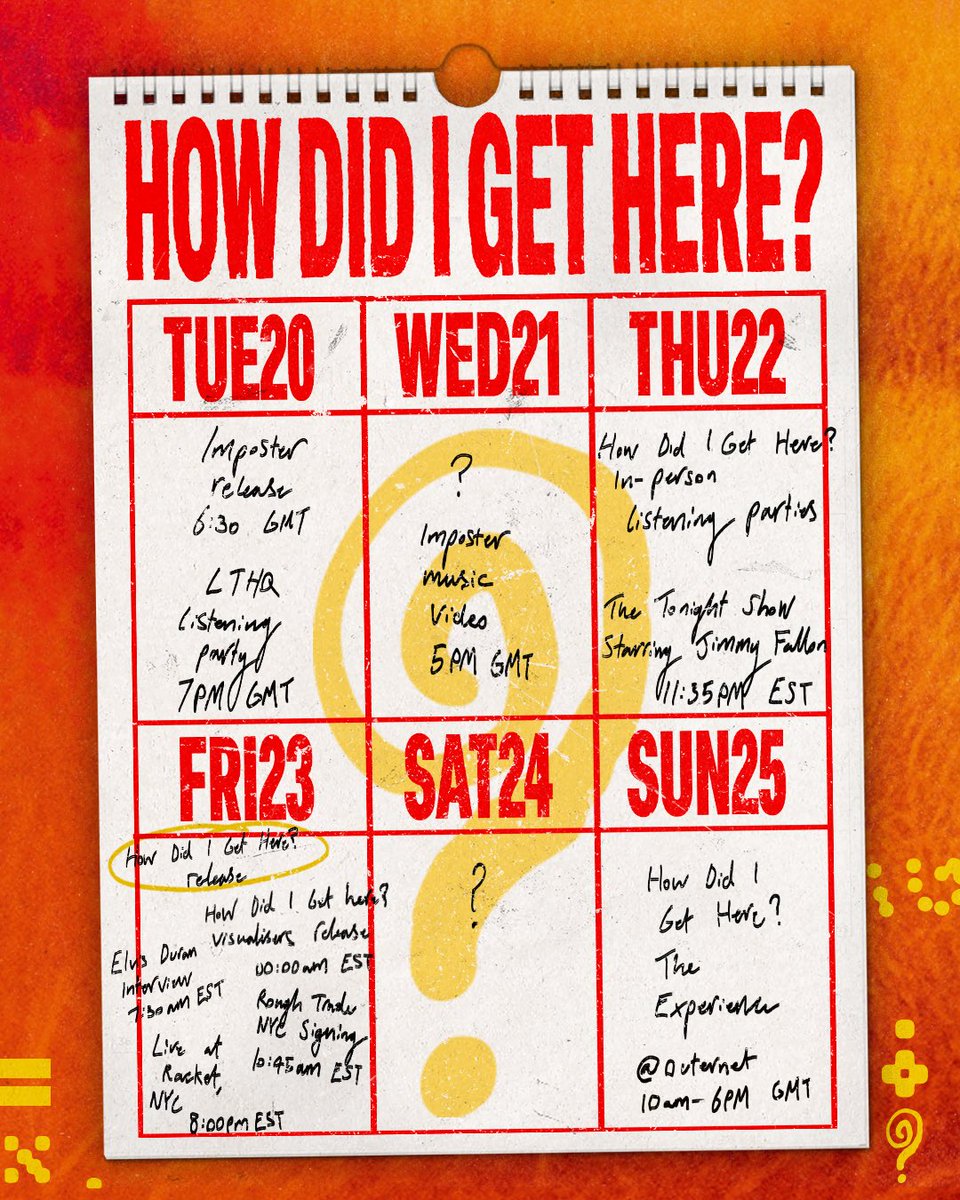 HOW DID I GET HERE?
TUE20
Imposter
release
6:30 GMT
LTHQ
listening
party
7PM GMT
WED21
?
Imposter
music
Video
5PM GMT
THU22
How Did I Get Here?
In-person
listening parties
The Tonight Show
Starring Jimmy Fallon
11:35PM EST
FRI23
How Did I Get Here?
release
How Did I Get here?
Visualisers release
00:00am EST
Elvis Duran
Interview
7:30am EST
Rough Trade
NYC Signing
10:45am EST
Live at
Racket,
NYC
8:00pm EST
SAT24
?
SUN25
How Did I
Get Here?
The
Experience
@Outernet
10am-6PM GMT